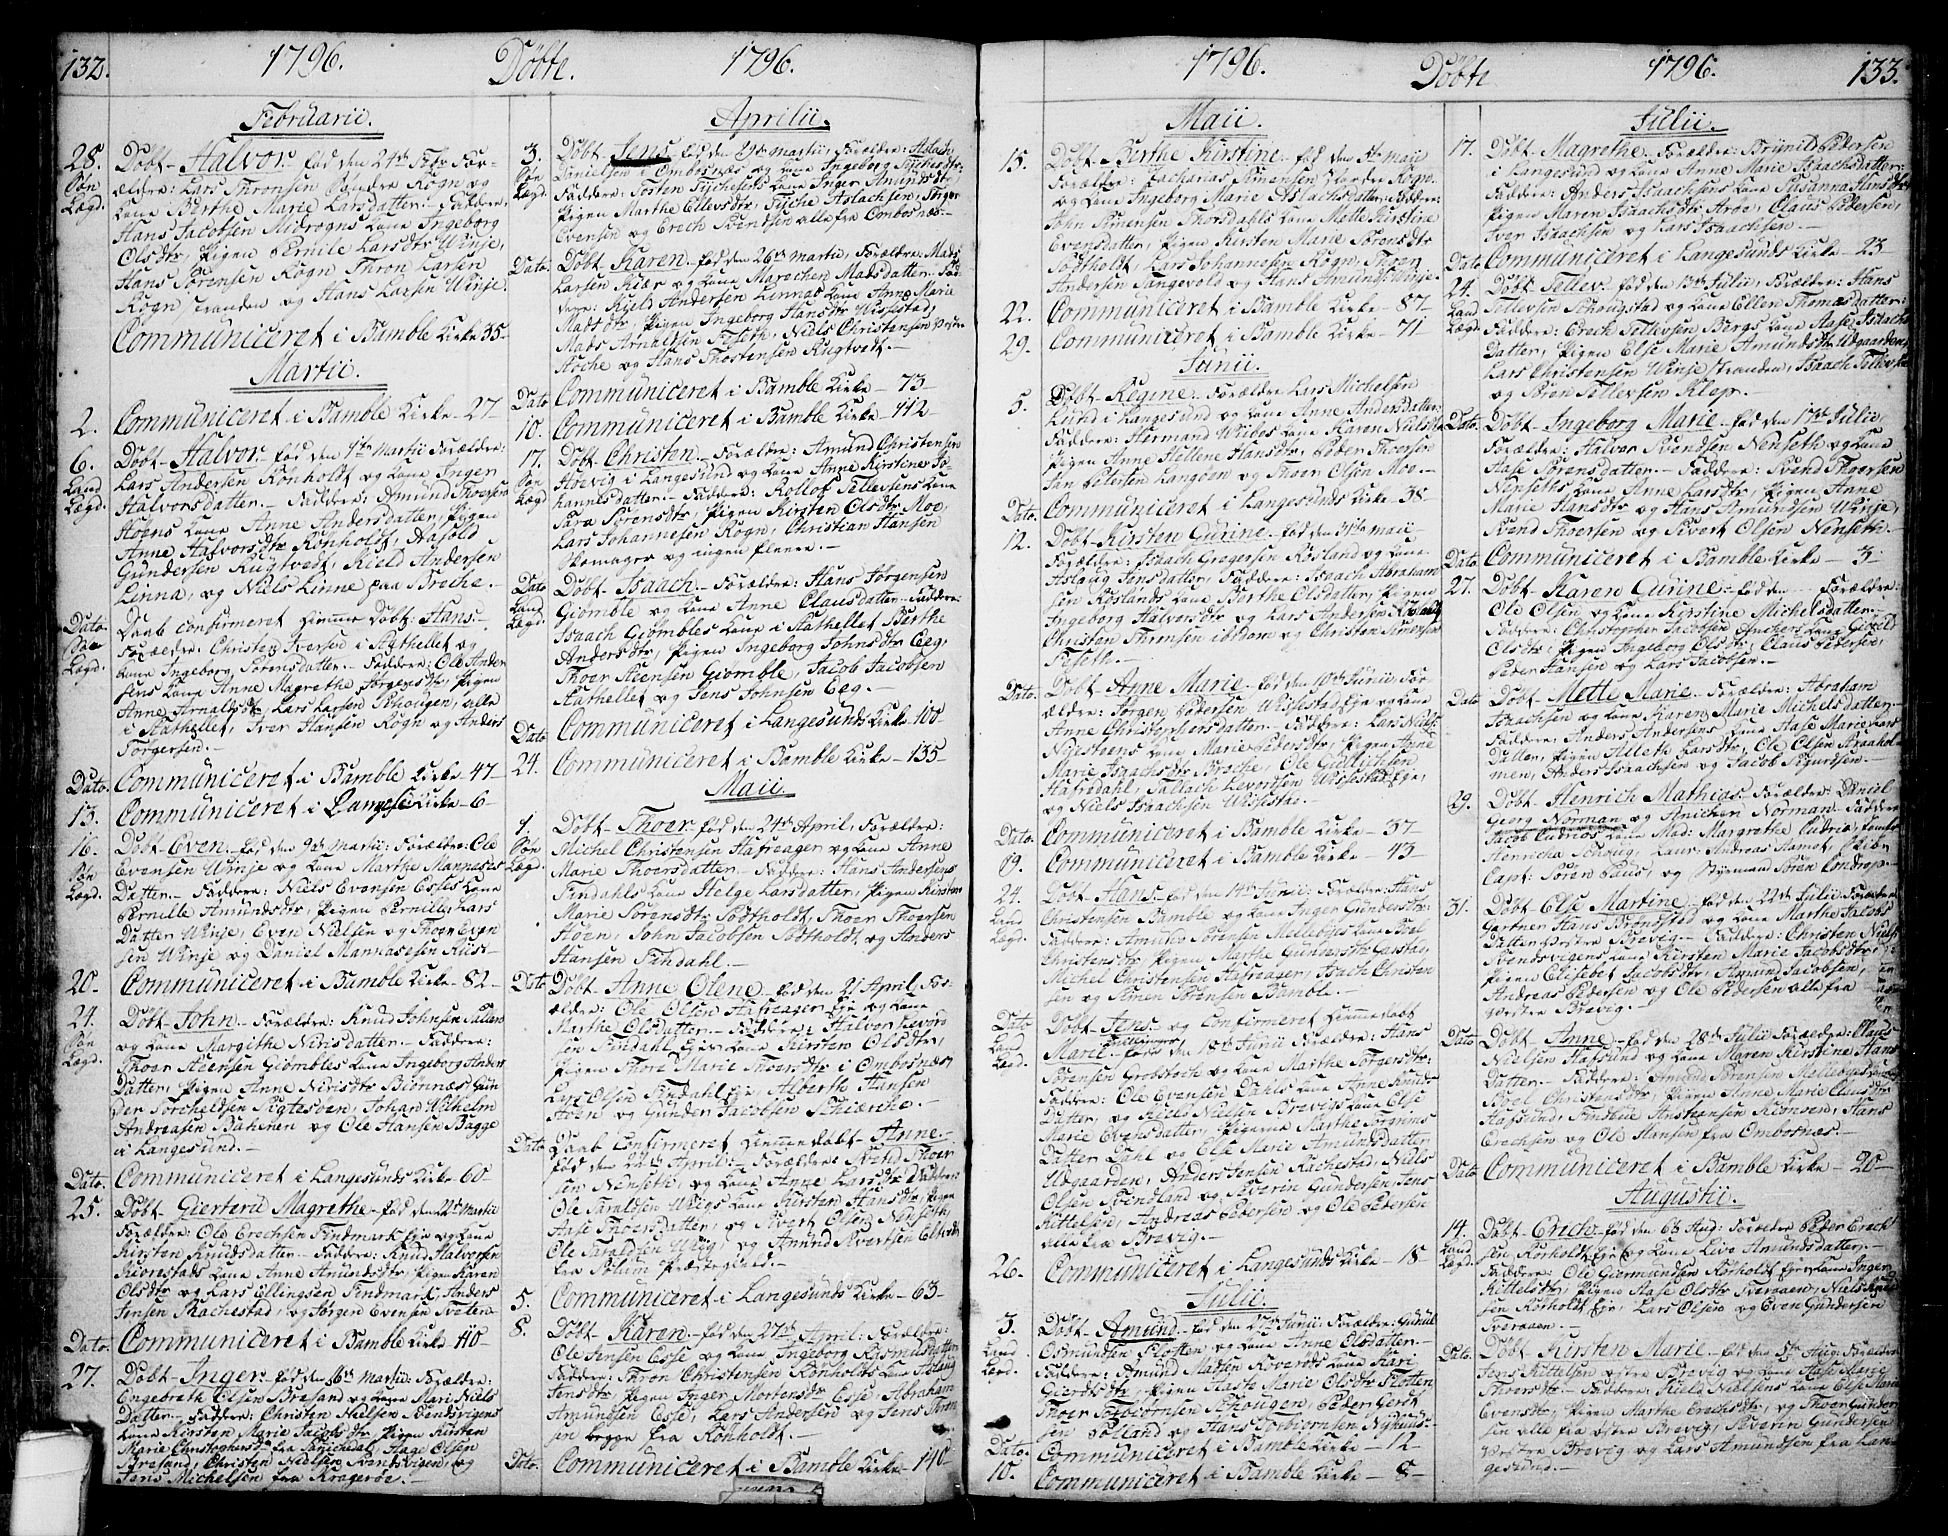 132.
1796. Döbte. 1796.
Februarii.
28. Döbt Halvor fød den 24de Febr For-
Søn ældre: Lars Thronsen Søndre Rogn og
Lægd. Kone Berthe Marie Larsdatter. Faddere:
Hans Jacobsen Midrogns Kone Ingeborg
Olsdtr, Pigen Pernille Larsdtr Winje,
Hans Sörensen Rogn Thron Larsen
Rogn stranden og Hans Larsen Winje.
Communiceret i Bamble Kirke 35
Martii.
2. Communiceret i Bamble Kirke 27
6. Döbt Halvor fød den 4de Martii Forældre:
Land Lars Andersen Rönholdt og Kone Inger
Lægd. Halvorsdatter. Faddere: Amund Thorsen
Hoens Kone Anne Andersdatter, Pigen
Anne Halvorsdtr Rönholdt, Aasold
Gundersen Rugtvedt, Kield Andersen
Linna, og Niels Linne paa Breche.
Dato Daab confirmeret hiemme Döbt: Hans.
Forældre: Christen Iversen i Stathellet og
Lægd. Kone Ingeborg Sörensdatter. Faddere: Ole Ander
sens Kone Anne Magrethe Jörgensdtr, Pigen
Anne Arnalsdtr, Lars Larsen Schougen, alle
i Stathellet, Iver Hansen Rogn og Anders
Torgersen.
Dato Communiceret i Bamble Kirke 47
13. Communiceret i Langes: Kirke 6
16. Döbt Even fød den 9de Martii Forældre: Ole
Søn Evensen Winje og Kone Marthe Mannases
Lægd. Datter. Faddere: Niels Evensen Esses Kone
Pernille Amundsdtr, Pigen Pernille Lars
Datter Winje, Even Nielsen og Thor Even
sen Winje og Daniel Mannasesen Rust
20. Communiceret i Bamble Kirke 82
24. Döbt John Forældre: Knud Johnsen
Søn og Kone Margithe Nirisdatter. Faddere:
Lægd. Thoer Steensen Giömbles Kone Ingeborg Anders
Datter, Pigen Anne Nirisdtr Biönnes, Gun
der Torcheldsen Sigtesöen, Johan Wilhelm
Andreasen Bahnen og Ole Hansen Bagge
i Langesund.
Dato. Communiceret i Langesunds Kirke 60
25. Döbt Giertrud Magrethe fød den 22de Martii
Forældre: Ole Erechsen Findmark Eje og Kone
Kirsten Knudsdatter. Faddere: Knud Halvorsen
Kiörestads Kone Anne Amundsdtr, Pigen Karen
Olsdtr og Lars Ellingsen Findmark, Anders
Jensen Rachestad og Jörgen Evensen Tveten
Dato. Communiceret i Bamble Kirke 110
27. Döbt Inger fød den 16de Martii Forældre:
Engebreth Olsen Bresand og Kone Mari Niels
Datter. Faddere: Christen Nielsen Svendsvigens
Kone Kirsten Marie Jacobsdtr Pigen Kirsten
Marie Christophersdtr fra Sannichedal, Aage Olsen
Bresand, Christen Nielsen Svendsvigen, og
Jens Michelsen fra Krageröe.
Aprilii.
3. Döbt Jens fød den 29de Martii, Forældre: Aslak
Søn Danielsen i Ombosnes og Kone Ingeborg Tychesdtr
Lægd. Faddere: Tosten Tychesens Kone Inger Amundsdtr
Pigen Marthe Ellevsdtr, Tyche Aslachsen, Torger
Evensen og Erech Svendsen alle fra Ombornes.
Dato. Döbt Karen fød den 26de Martii, Forældre: Mads
Larsen Kiær og Kone Marechen Madsdatter. Fad
dere: Kield Andersen Linnas Kone Anne Marie
Madsdtr, Pigen Ingeborg Hansdtr Wissestad,
Mads Arnalsen Feseth, Niels Christensen Vestre
Hoche og Hans Thostensen Rugtvedt.
Dato Communiceret i Bamble Kirke 73
10. Communiceret i Bamble Kirke 112
17. Döbt Christen. Forældre: Amund Christensen
Søn Arevig i Langesund og Kone Anne Kirstine Jo
Lægd. hannesdatter. Faddere: Rollof Tellevsens Kone
Sara Sörensdtr, Pigen Kirsten Olsdtr Moe,
Lars Johannesen Rogn, Christian Hansen
Skomager og ingen fleere.
Dato Döbt Isaach. Forældre: Hans Jörgensen
Land Giömble og Kone Anne Clausdatter. Faddere:
Lægd. Isaach Giömbles Kone i Stathellet Berthe
Andersdtr, Pigen Ingeborg Johnsdtr Eeg,
Thoer Steensen Giömble, Jacob Jacobsen
Stathellet og Jens Johnsen Eeg.
Dato Communiceret i Langesunds Kirke 100
24. Communiceret i Bamble Kirke 135
Maii.
1. Döbt Thoer fød den 24de April, Forældre:
Søn Michel Christensen Hafreager og Kone Anne
Lægd. Marie Thoersdatter. Faddere: Hans Andersens
Findahls Kone Helge Larsdatter, Pigen Kirsten
Marie Sörensdtr Todtholdt, Thoer Thoersen
Höen, John Jacobsen Todtholdt, og Anders
Hansen Findahl.
Dato Döbt Anne Olene fød den 21 April, For-
ældre: Ole Olsen Hafreager Eje og Kone
Marthe Olsdatter. Faddere: Halvor Levor
sen Findahl Ejes Kone Kirsten Olsdtr,
Pigen Thore Marie Thoersdtr i Ombosnes,
Lyr Olsen Findahl Eje, Alberth Hansen
Aven og Gunder Jacobsen Schierche.
Dato Daab Confirmeret hiemmedöbt Anne
fød den 22de April. Forældre: Svend Thoer
sen Nenseth og Kone Anne Larsdtr. Faddere:
Ole Taraldsen Wiigs Kone Kirsten Hansdtr, Pigen
Aase Thoersdatter, og Sivert Olsen Nenseth,
Ole Taraldsen Wiig og Amund Sivertsen
fra Solum Præstegield.
5. Communiceret i Langesunds Kirke 63
8. Döbt Karen fød den 27de April: Forældre:
Ole Jensen Esse og Kone Ingeborg Rasmusdatter.
Faddere: Thron Christensen Rönholts Kone Aslaug
Jensdtr, Pigen Inger Mortensdtr Esse, Abraham
Amundsen Esse, Lars Andersen og Jens Thron
sen begge fra Rönholdt.
Dato. Communiceret i Bamble Kirke 140
1796. Döbte 1796. 133.
Maii.
15. Döbt Berthe Kirstine fød den 5te Maii
Forældre: Zacharias Simensen Nordre Rogn
og Kone Ingeborg Marie Aslachsdatter. Faddere:
John Simensen Thorsdahls Kone Mette Kirstine
Evensdatter, Pigen Kirsten Marie Sörensdtr
Todtholdt, Lars Johannesen Rogn, Thoer
Andersen Tangevold og Hans Amundsen Winje.
22. Communiceret i Bamble Kirke 87
29. Communiceret i Bamble Kirke 71
Junii.
5. Döbt Regine. Forældre Lars Michelsen
Lund i Langesund og Kone Anne Andersdatter.
Faddere: Hermand Wiibes Kone Karen Nielsdtr
Pigen Anne Hellene Hansdtr, Peder Thoersen
Jan Petersen Langöen og Thoer Olsen Moe.
Dato. Communiceret i Langesunds Kirke 38
12. Döbt Kirsten Gurine fød den 31te Maii
Forældre: Isaach Gregersen Rösland og Kone
Aslaug Jensdatter, Faddere: Isaach Abraham
sen Röslands Kone Berthe Olsdatter, Pigen
Ingeborg Halvorsdtr og Lars Andersen Rösland,
Christen Sörensen ibidem og Christen Simonsen
Feseth.
Dato. Döbt Anne Marie fød den 10de Junii For
ældre: Jörgen Pedersen Wissestad Eje og Kone
Anne Christophersdatter. Faddere: Lars Niels.
Nysteens Kone Marie Pedersdtr, Pigen Anne
Marie Isaachsdtr Breche, Ole Gullichsen
Hafredahl, Tallach Levordsen Wissestad Eje,
og Niels Isaachsen Wissestad.
Dato. Communiceret i Bamble Kirke 37
19. Communiceret i Bamble Kirke 43
24. Döbt Hans fød den 14de Junii: Forældre: Hans
Land Christensen Bamble og Kone Inger Gundersdtr.
Lægd. Faddere: Amund Sörensen Mellebyes Kone Boel
Christensdtr, Pigen Marthe Gundersdtr Grastad,
Michel Christensen Hafreager, Isach Christen
sen og Simen Sörensen Bamble.
Dato Döbt Jens og Confirmeret hiemmedöbt
Land Marie Tvillinger fødde den 18de Junii: Forældre: Hans
Lægd. Sörensen Grobstoch og Kone Marthe Jörgensdtr.
Faddere: Ole Evensen Dahls Kone Anne Knuds
Datter, og Niels Nielsen Brevigs Kone Else
Marie Evensdatter, Pigerne Marthe Torgrims
Datter Dahl og Else Marie Amundsdatter
Udgaarden, Anders Jensen Rachestad, Niels
Olsen Svendland og Severin Gundersen, Jens
Kittelsen, Andreas Pedersen og Ole Pedersen
alle fra Brevig.
26. Communiceret i Langesunds Kirke 18
Julii.
3. Döbt Amund fød den 27de Junii Forældre: Gunul
Land Osmundsen Slotten, og Kone Anne Olsdatter.
Lægd. Faddere: Amund Madsen Roverds Kone Kari
Giertsdtr, Pigen Aaste Marie Olsdtr Slotten
Thoer Torbiörnsen Schougen, Peder Gierst
sen Solland og Hans Torbiörnsen Nyhuus.
Dato. Communiceret i Bamble Kirke 12
10. Communiceret i Bamble Kirke 8
Julii.
17. Döbt Magrethe. Forældre: Brynild Pedersen
i Langesund og Kone Anne Marie Isaachsdatter.
Faddere: Anders Isaachsens Kone Susanna Hansdtr
Pigen Maren Isaachsdtr Arbo, Claus Pedersen,
Iver Isaachsen og Lars Isaachsen.
Dato Communiceret i Langesunds Kirke 23
24. Döbt Tellev fød den 13de Julii, Forældre: Hans
Land Tellevsen Schougstad og Kone Ellen Thomasdatter.
Lægd. Faddere: Erech Tellevsen Bergs Kone Aase Isaachs
Datter, Pigen Else Marie Amundsdtr Udgaarden,
Lars Christensen Winje stranden, Isaach Tellevsen
og Sören Tellevsen Klep.
Dato. Döbt Ingeborg Marie fød den 13de Julii
Forældre: Halvor Svendsen Nenseth og Kone
Aase Sörensdatter. Faddere: Svend Thoersen
Nenseths Kone Anne Larsdtr, Pigen Anne
Marie Hansdtr og Hans Amundsen Winje,
Svend Thoersen og Sivert Olsen Nenseth.
Dato Communiceret i Bamble Kirke 3
27. Döbt Karen Gurine fød den Forældre:
Ole Olsen og Kone Kirstine Michelsdatter.
Faddere: Christopher Jacobsen Anchers Kone Giœrild
Olsdtr, Pigen Ingeborg Olsdtr, Claus Pedersen,
Peder Hansen og Lars Jacobsen.
Dato Döbt Mette Marie. Forældre: Abraham
Isaachsen og Kone Karen Marie Michelsdatter.
Faddere: Anders Andersens Kone Aase Marie Lars
Datter, Pigen Alleth Larsdtr, Ole Olsen Straahol
men, Anders Isaachsen og Jacob Sigurdsen.
29. Döbt Henrich Mathias. Forældre: Daniel
Georg Norman og Anichen Norman. Faddere
Jacob Cudrios Kone Mad: Margrethe Cudrio, Jomfr.
Henricha Schoug, Laur: Andreas Aamot, Skibs
Capt: Sören Paus, og Styrmand Sören Comdrop.
31. Döbt Else Martine fød den 22de Julii Forældre
Gartner Hans Bröndstad og Kone Marthe Jacobs
Datter Vestre Brevig. Faddere: Christen Niels.
Svendsvigens Kone Kirsten Marie Jacobsdtr,
Pigen Elisebet Jacobsdtr, Amund Jacobsen,
Andreas Pedersen og Ole Pedersen alle fra
Vestre Brevig.
Dato Döbt Anne fød den 28de Julii Forældre: Claus
Nielsen Hafsund og Kone Maren Kirstine Hans
Datter. Faddere: Amund Sörensen Mellebyes Kone
Boel Christensdtr, Pigen Anne Marie Clausdtr
Hafsund, Hans
Erechsen og Ole Hansen fra Ombosnæs.
Dato Communiceret i Bamble Kirke 20
Augustii.
14. Döbt Erich fød den 6te Aug: Forældre Peder Erech
Land sen Rörholdt Eje og Kone Live Amundsdatter.
Lægd. Faddere: Ole Giermundsen Rörholdt Ejes Kone Inger
Kittelsdtr, Pigen Aase Olsdtr Tveraaen, Niels
sen Rörholdt Eje, Lars Olsen og Even Gundersen
Tveraaen.
Dato. Döbt Kirsten Marie fød den 5te Aug: Forældre
Jens Kittelsen Østre Brevig og Kone Aase Marie
Thoersdtr. Faddere: Kield Nielsens Kone Else Marie
Evensdtr, Pigen Marthe Erechsdtr og Thoer Gunder
sen alle fra Østre Brevig, Severin Gundersen
Vestre Brevig og Lars Amundsen fra Lan
gesund.